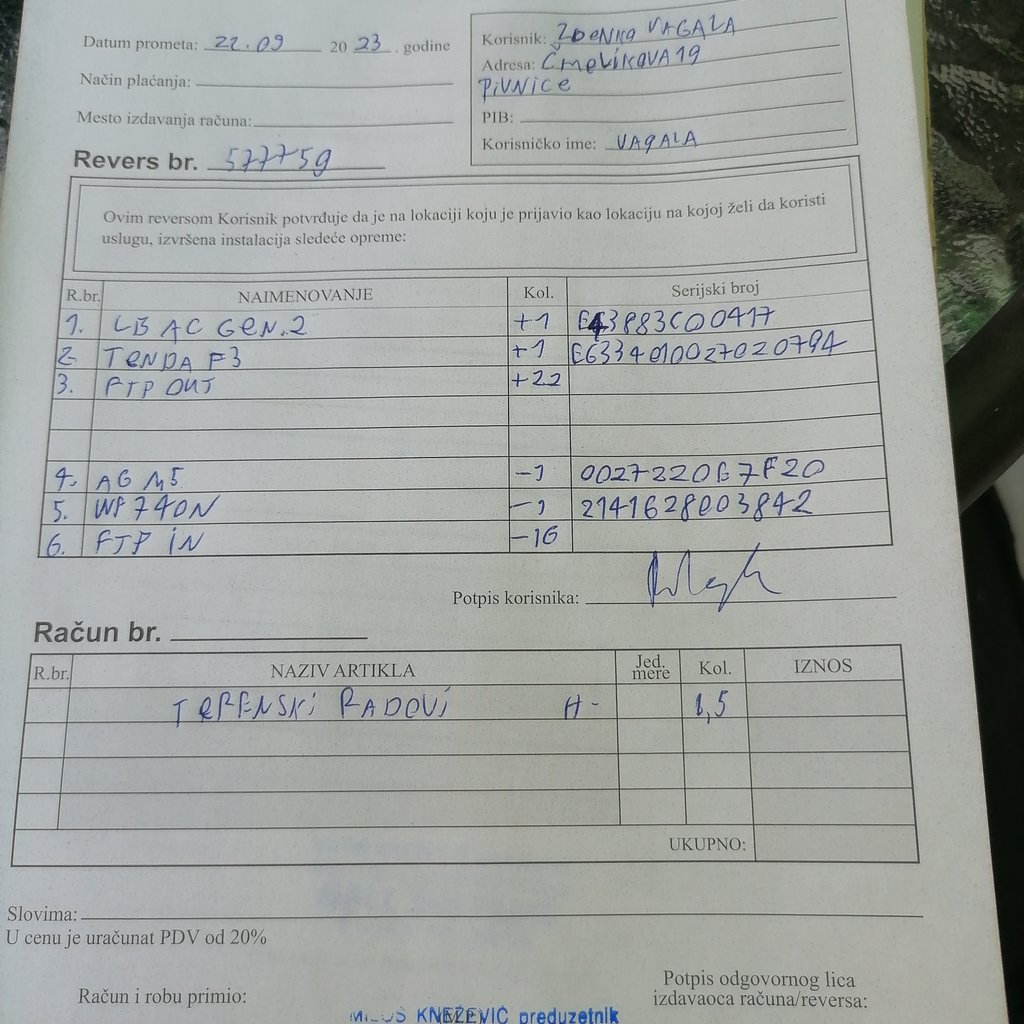 Datum prometa: 22.09 2023. godine
Način plaćanja:
Mesto izdavanja računa:
Revers br. 577759
Korisnik: ZDENKO VAGALA
Adresa: ČMELIKOVA 19
PIVNICE
PIB:
Korisničko ime: VAGALA
Ovim reversom Korisnik potvrđuje da je na lokaciji koju je prijavio kao lokaciju na kojoj želi da koristi
uslugu, izvršena instalacija sledeće opreme:
R.br. NAIMENOVANJE Kol. Serijski broj
1. LB AC GEN.2 +1
2. TENDA F3 +1 E6334010027020794
3. FTP OUT +22
4. AG M5 -1
5. WP740N -1 2141628003842
6. FTP IN -16
Potpis korisnika:
Račun br.
R.br. NAZIV ARTIKLA Jed. mere Kol. IZNOS
TERENSKI RADOVI H- 1,5
UKUPNO:
Slovima:
U cenu je uračunat PDV od 20%
Račun i robu primio:
Potpis odgovornog lica
izdavaoca računa/reversa:
MILOŠ KNEŽEVIĆ preduzetnik